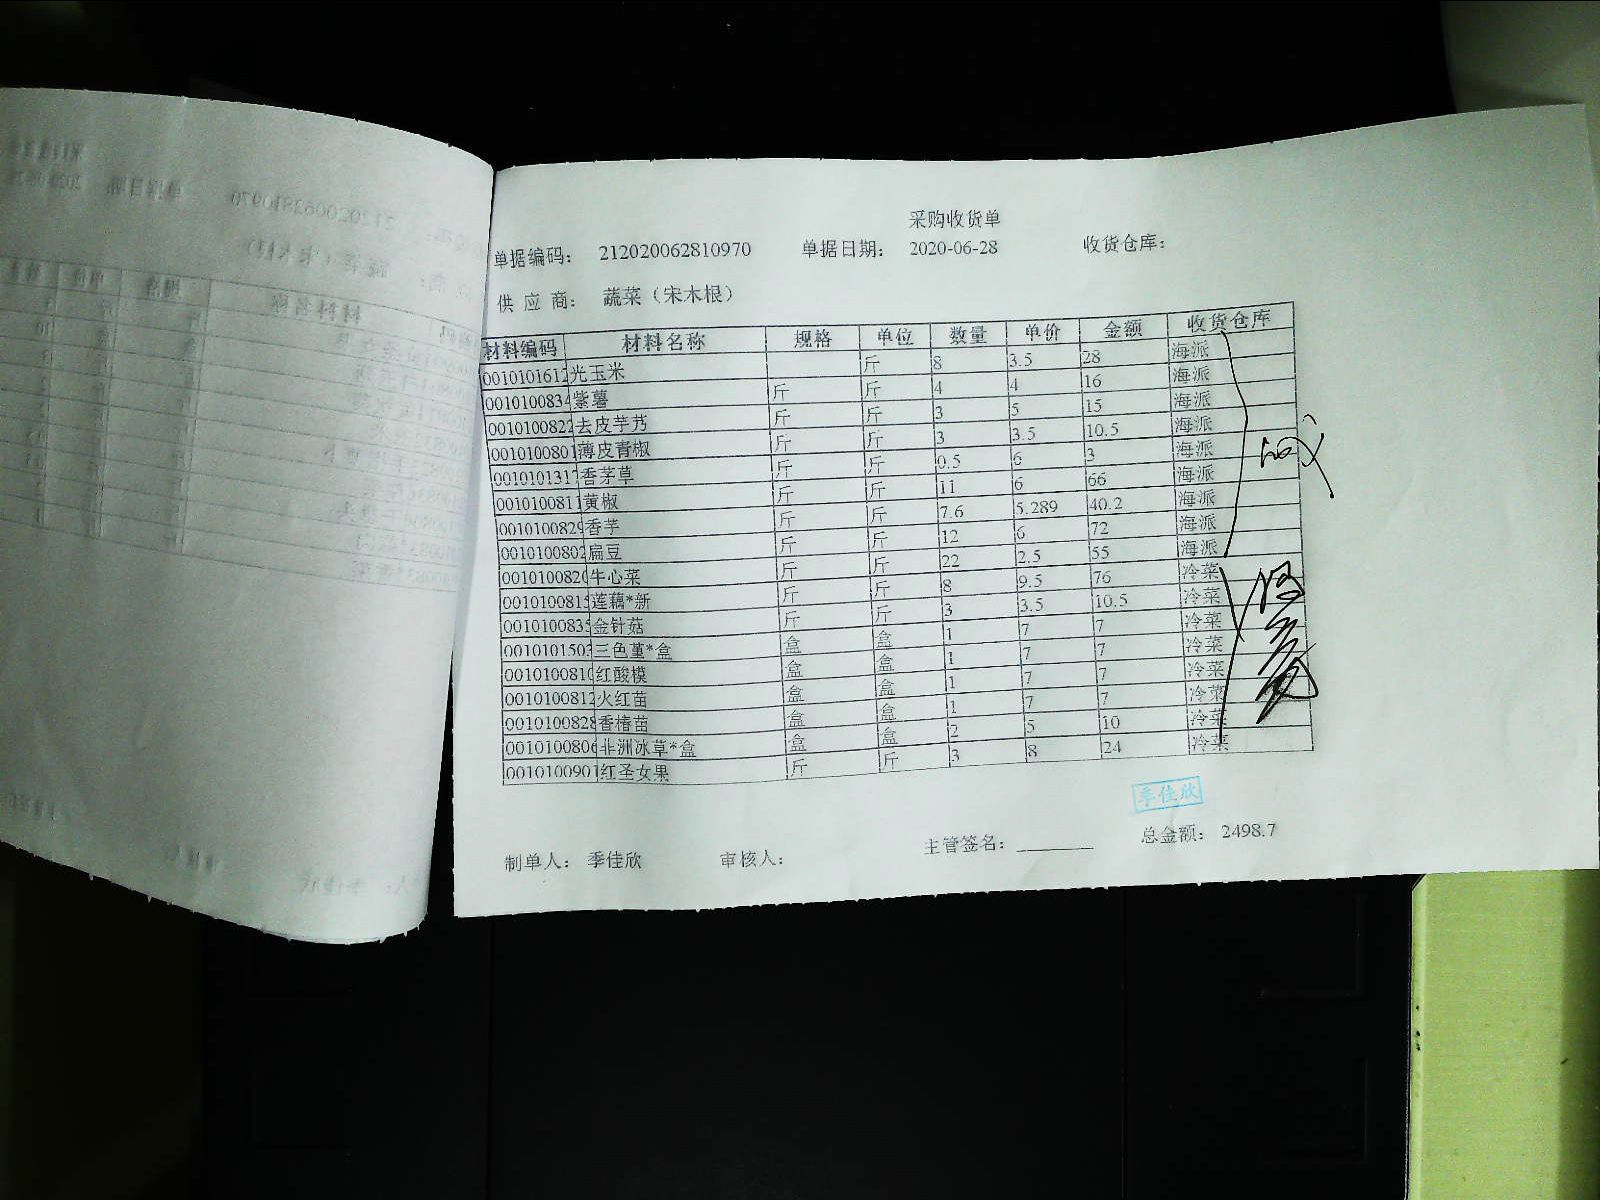 采购收货单
单据编码: 212020062810970 单据日期: 2020-06-28 收货仓库:
供应商: 蔬菜（宋木根）
材料编码 材料名称 规格 单位 数量 单价 金额 收货仓库
0010101612 光玉米 斤 8 3.5 28 海派
0010100834 紫薯 斤 斤 4 4 16 海派
0010100822 去皮芋艿 斤 斤 3 5 15 海派
0010100801 薄皮青椒 斤 斤 3 3.5 10.5 海派
0010101317 香茅草 斤 斤 0.5 6 3 海派
0010100811 黄椒 斤 斤 11 6 66 海派
0010100829 香芋 斤 斤 7.6 5.289 40.2 海派
0010100802 扁豆 斤 斤 12 6 72 海派
0010100820 牛心菜 斤 斤 22 2.5 55 海派
0010100815 莲藕*新 斤 斤 8 9.5 76 冷菜
0010100835 金针菇 斤 斤 3 3.5 10.5 冷菜
0010101503 三色堇*盒 盒 盒 1 7 7 冷菜
0010100810 红酸模 盒 盒 1 7 7 冷菜
0010100812 火红苗 盒 盒 1 7 7 冷菜
0010100828 香椿苗 盒 盒 1 7 7 冷菜
0010100806 非洲冰草*盒 盒 盒 2 5 10 冷菜
0010100901 红圣女果 斤 斤 3 8 24 冷菜
季佳欣
制单人: 季佳欣 审核人: 主管签名: 总金额: 2498.7